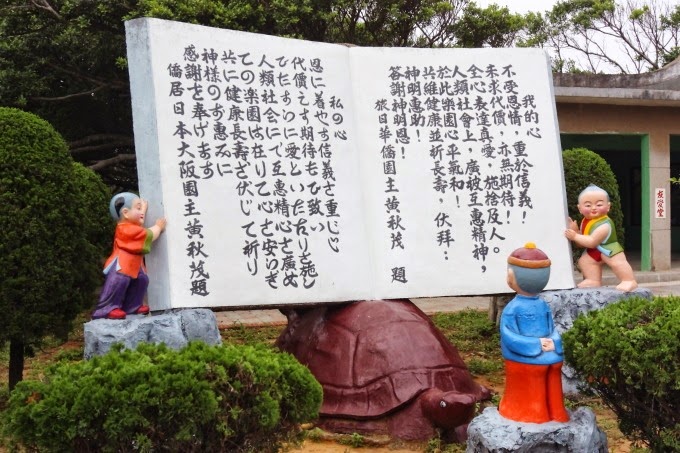 我的心
不受恩情，重於信義！
未求代價，亦無期待！
全心表達真愛，施捨及人。
人類社會上，廣被互惠精神，
於此樂園心平氣和！
共維健康並祈長壽，伏拜：
神明惠助！
答謝神明恩！
旅日華僑園主黃秋茂 題
私の心
恩に着やす信義を重じ心
代價とす期待もひ致い
ひたすらに愛といたわりを施し
人類社会にて互惠精心を廣め
ての楽園は在りて心を安らぎ
共に健康長寿を伏して祈り
神様のお惠みに
感謝を奉げます
僑居日本大阪園主黃秋茂題